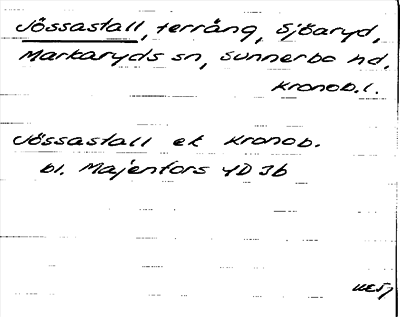 Jössastall, terräng, Sjöaryd,
Markaryds sn, Sunnerbo hd,
Kronob.l.
Jössastall ek Kronob.
bl. Majenfors 4D 3b